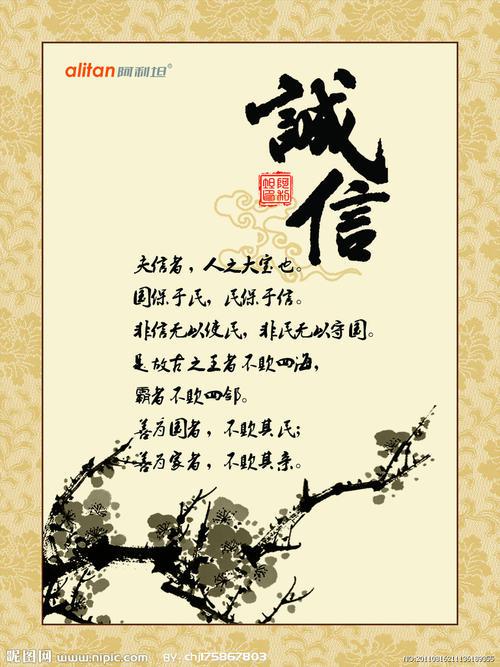 alitan阿利坦®
誠
信
夫信者，人之大宝也。
国保于民，民保于信。
非信无以使民，非民无以守国。
是故古之王者不欺四海，
霸者不欺四邻。
善为国者，不欺其民；
善为家者，不欺其亲。
昵图网 www.nipic.com
BY: chj175867803